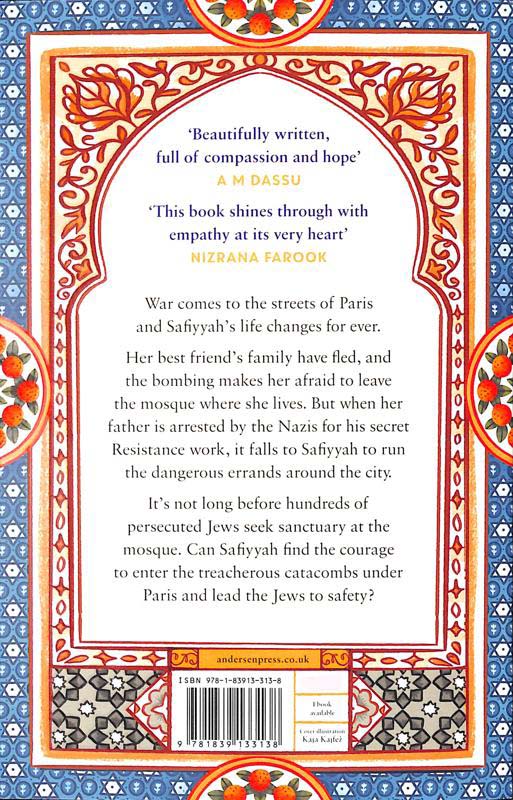 ‘Beautifully written,
full of compassion and hope’
A M DASSU
‘This book shines through with
empathy at its very heart’
NIZRANA FAROOK
War comes to the streets of Paris
and Safiyyah’s life changes for ever.
Her best friend’s family have fled, and
the bombing makes her afraid to leave
the mosque where she lives. But when her
father is arrested by the Nazis for his secret
Resistance work, it falls to Safiyyah to run
the dangerous errands around the city.
It’s not long before hundreds of
persecuted Jews seek sanctuary at the
mosque. Can Safiyyah find the courage
to enter the treacherous catacombs under
Paris and lead the Jews to safety?
andersenpress.co.uk
ISBN 978-1-83913-313-8
9 781839 133138
Ebook
available
Cover illustration
Kaja Kajfež